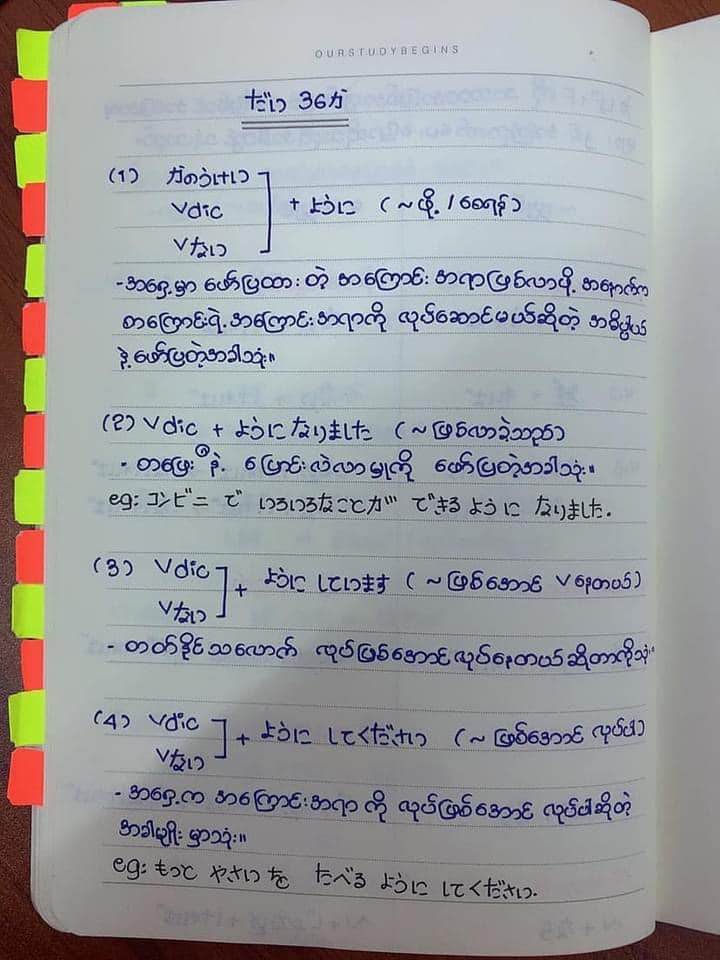 OURSTUDYBEGINS
だい 36か
(1) かのうけい
Vdic
+ ように (~ဖို့ / စေရန်)
Vない
- အရှေ့မှာ ဖော်ပြထားတဲ့ အကြောင်းအရာဖြစ်လာဖို့ အနောက်က
စာကြောင်းရဲ့အကြောင်းအရာကို လုပ်ဆောင်မယ်ဆိုတဲ့ အဓိပ္ပါယ်
နဲ့ဖော်ပြတဲ့အခါသုံး။
(၃) Vdic + ように なりました (~ဖြစ်လာခဲ့သည်)
- တဖြေးဖြေးနဲ့ ပြောင်းလဲလာမှုကို ဖော်ပြတဲ့အခါသုံး။
eg: コンビニ で いろいろなことが できる ように なりました.
(3) Vdic
+ ように しています (~ဖြစ်အောင် Vနေတယ်)
Vない
- တတ်နိုင်သလောက် လုပ်ဖြစ်အောင်လုပ်နေတယ်ဆိုတာကိုသုံး။
(4) Vdic
+ ように してください (~ဖြစ်အောင် လုပ်ပါ)
Vない
- အရှေ့က အကြောင်းအရာကို လုပ်ဖြစ်အောင် လုပ်ပါဆိုတဲ့
အခါမျိုးမှာသုံး။
eg: もっと やさい を たべる ように してください.